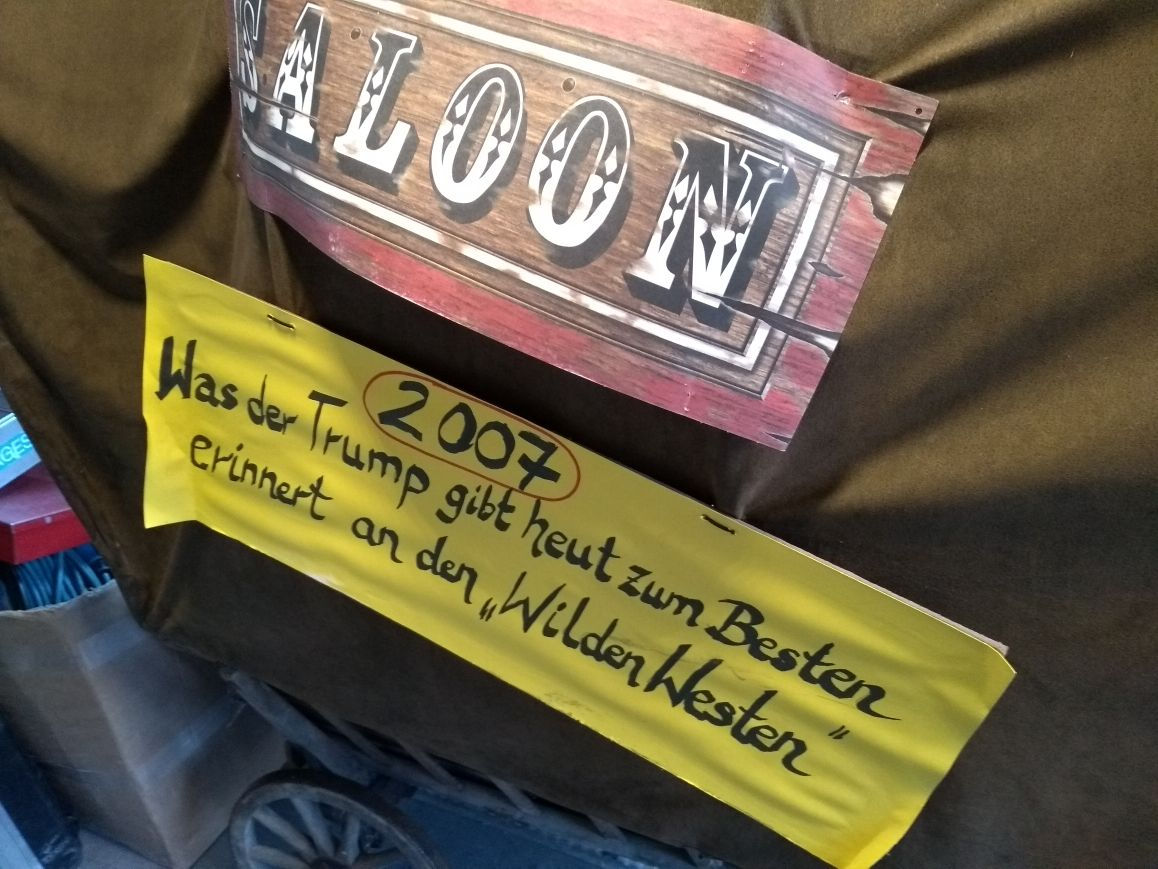 SALOON
2007
Was der Trump gibt heut zum Besten
erinnert an den „Wilden Westen"